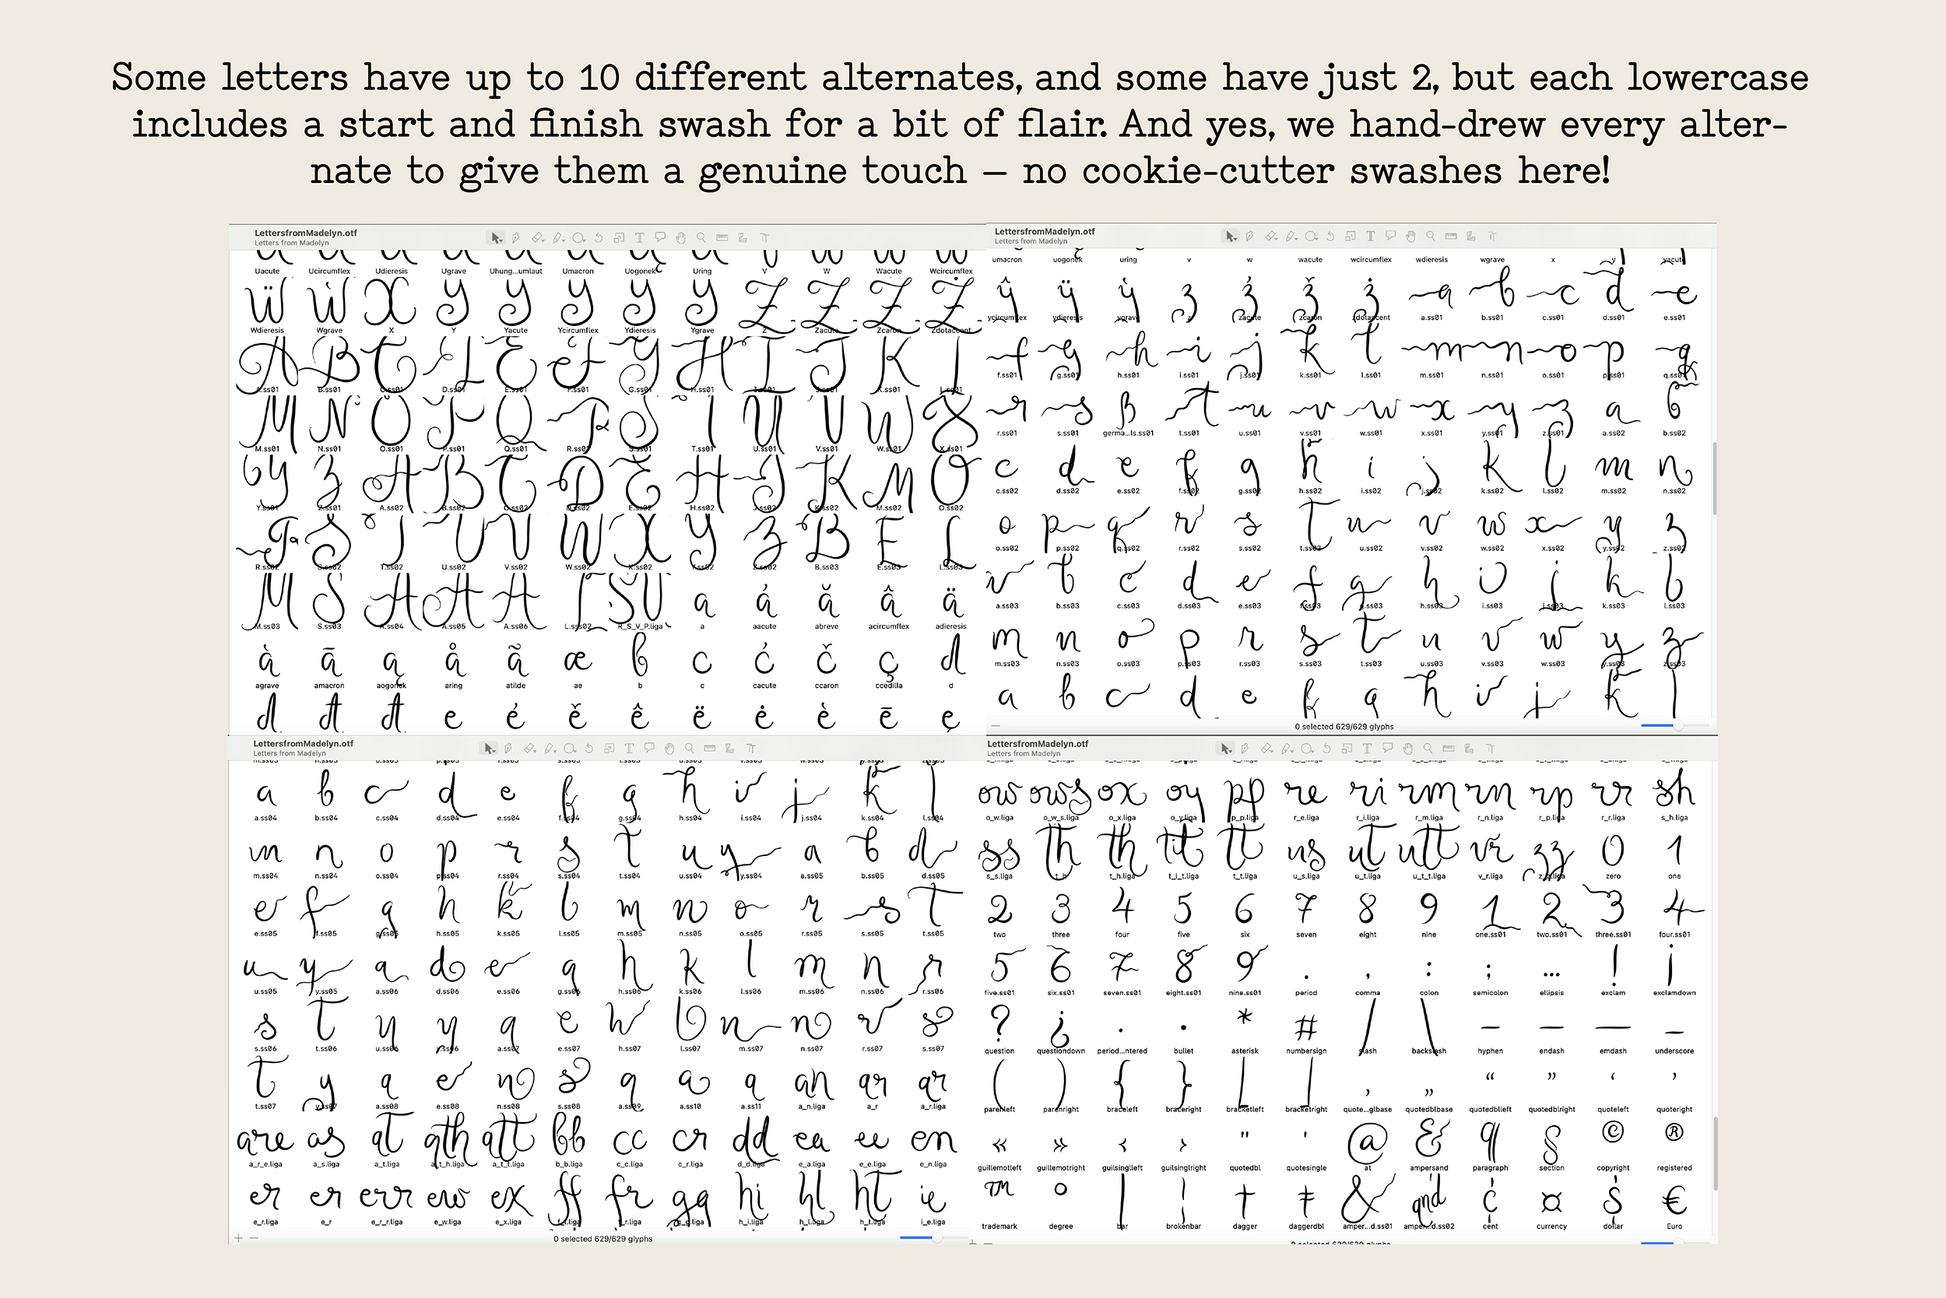 Some letters have up to 10 different alternates, and some have just 2, but each lowercase
includes a start and finish swash for a bit of flair. And yes, we hand-drew every alter-
nate to give them a genuine touch – no cookie-cutter swashes here!
LettersfromMadelyn.otf
Letters from Madelyn
Uacute Ucircumflex Udieresis Ugrave Uhung...umlaut Umacron Uogonek Uring V W Wacute Wcircumflex
Wdieresis Wgrave X Y Yacute Ycircumflex Ydieresis Ygrave Z Zacute Zcaron Zdotaccent
M.ss01 N.ss01 O.ss01 P.ss01 Q.ss01 R.ss01 S.ss01 T.ss01 U.ss01 V.ss01 W.ss01 X.ss01
M.ss03 S.ss03 A.ss04 A.ss05 A.ss06 L.ss02 R_S_V_P.liga a aacute abreve acircumflex adieresis
agrave amacron aogonek aring atilde ae b c cacute ccaron ccedilla d
LettersfromMadelyn.otf
Letters from Madelyn
umacron uogonek uring v w wacute wcircumflex wdieresis wgrave x y yacute
ycircumflex ydieresis ygrave z zacute zcaron zdotaccent a.ss01 b.ss01 c.ss01 d.ss01 e.ss01
f.ss01 g.ss01 h.ss01 i.ss01 j.ss01 k.ss01 l.ss01 m.ss01 n.ss01 o.ss01 p.ss01 q.ss01
r.ss01 s.ss01 germa...ls.ss01 t.ss01 u.ss01 v.ss01 w.ss01 x.ss01 y.ss01 z.ss01 a.ss02 b.ss02
c.ss02 d.ss02 e.ss02 f.ss02 g.ss02 h.ss02 i.ss02 j.ss02 k.ss02 l.ss02 m.ss02 n.ss02
o.ss02 p.ss02 q.ss02 r.ss02 s.ss02 t.ss02 u.ss02 v.ss02 w.ss02 x.ss02 y.ss02 z.ss02
a.ss03 b.ss03 c.ss03 d.ss03 e.ss03 f.ss03 g.ss03 h.ss03 i.ss03 j.ss03 k.ss03 l.ss03
m.ss03 n.ss03 o.ss03 p.ss03 r.ss03 s.ss03 t.ss03 u.ss03 v.ss03 w.ss03 y.ss03 z.ss03
0 selected 629/629 glyphs
LettersfromMadelyn.otf
Letters from Madelyn
a.ss04 b.ss04 c.ss04 d.ss04 e.ss04 f.ss04 g.ss04 h.ss04 i.ss04 j.ss04 k.ss04 l.ss04
m.ss04 n.ss04 o.ss04 p.ss04 r.ss04 s.ss04 t.ss04 u.ss04 y.ss04 a.ss05 b.ss05 d.ss05
e.ss05 f.ss05 g.ss05 h.ss05 k.ss05 l.ss05 m.ss05 n.ss05 o.ss05 r.ss05 s.ss05 t.ss05
u.ss05 y.ss05 a.ss06 d.ss06 e.ss06 g.ss06 h.ss06 k.ss06 l.ss06 m.ss06 n.ss06 r.ss06
s.ss06 t.ss06 u.ss06 y.ss06 a.ss07 e.ss07 h.ss07 l.ss07 m.ss07 n.ss07 r.ss07 s.ss07
t.ss07 y.ss07 a.ss08 e.ss08 n.ss08 s.ss08 a.ss09 a.ss10 a.ss11 a_n.liga a_r a_r.liga
a_r_e.liga a_s.liga a_t.liga a_t_h.liga a_t_t.liga b_b.liga c_c.liga c_r.liga d_d.liga e_a.liga e_e.liga e_n.liga
e_r.liga e_r e_r_r.liga e_w.liga e_x.liga f_f.liga f_r.liga g_g.liga h_i.liga h_l.liga h_t.liga i_e.liga
0 selected 629/629 glyphs
LettersfromMadelyn.otf
Letters from Madelyn
o_w.liga o_w_s.liga o_x.liga o_y.liga p_p.liga r_e.liga r_i.liga r_m.liga r_n.liga r_p.liga r_r.liga s_h.liga
s_s.liga t_h t_h.liga t_i_t.liga t_t.liga u_s.liga u_t.liga u_t_t.liga v_r.liga z_z.liga zero one
two three four five six seven eight nine one.ss01 two.ss01 three.ss01 four.ss01
five.ss01 six.ss01 seven.ss01 eight.ss01 nine.ss01 period comma colon semicolon ellipsis exclam exclamdown
question questiondown period...ntered bullet asterisk numbersign slash backslash hyphen endash emdash underscore
parenleft parenright braceleft braceright bracketleft bracketright quote...glbase quotedblbase quotedblleft quotedblright quoteleft quoteright
guillemotleft guillemotright guilsinglleft guilsinglright quotedbl quotesingle at ampersand paragraph section copyright registered
trademark degree bar brokenbar dagger daggerdbl amper...d.ss01 amper...d.ss02 cent currency dollar Euro